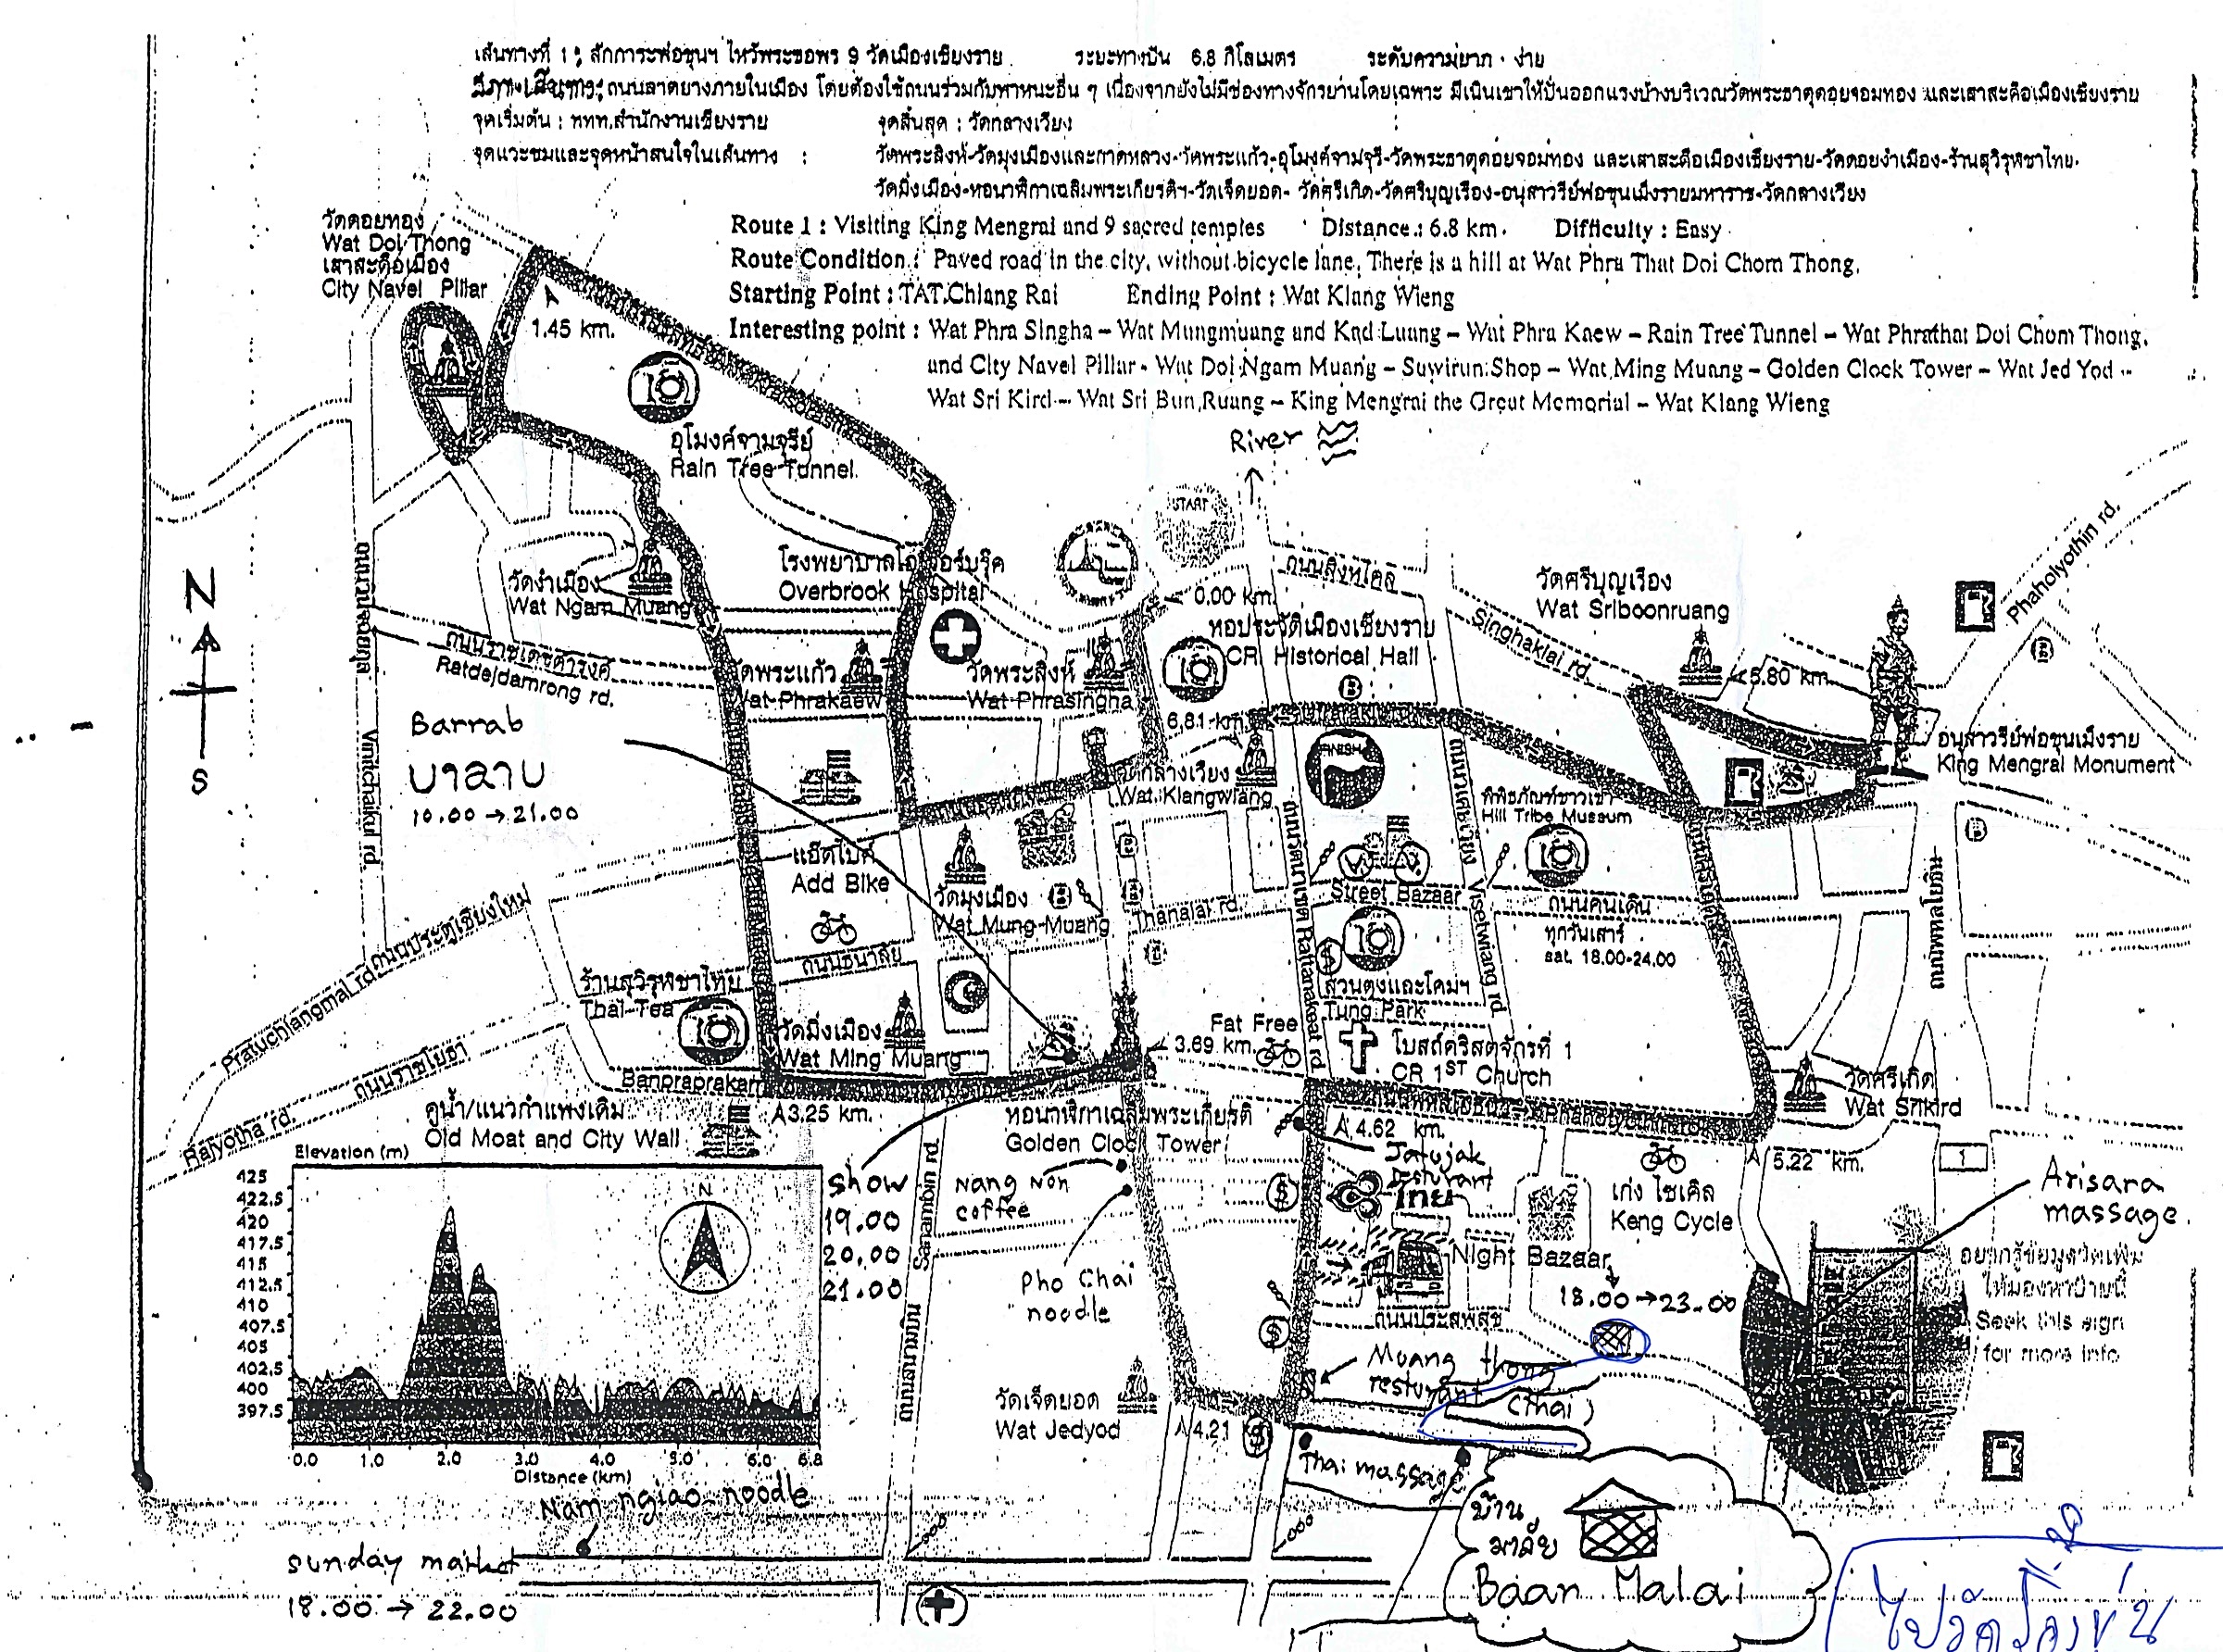 เส้นทางที่ 1 : สักการะพ่อขุนฯ ไหว้พระขอพร 9 วัดเมืองเชียงราย ระยะทางปั่น 6.8 กิโลเมตร ระดับความยาก : ง่าย
ถนนลาดยางภายในเมือง โดยต้องใช้ถนนร่วมกับพาหนะอื่น ๆ เนื่องจากยังไม่มีช่องทางจักรยานโดยเฉพาะ มีเนินเขาให้ปั่นออกแรงบ้างบริเวณวัดพระธาตุดอยจอมทอง และเสาสะดือเมืองเชียงราย
จุดเริ่มต้น : ททท.สำนักงานเชียงราย จุดสิ้นสุด : วัดกลางเวียง
จุดแวะชมและจุดหน้าสนใจในเส้นทาง : วัดพระสิงห์-วัดมุงเมืองและกาดหลวง-วัดพระแก้ว-อุโมงค์จามจุรี-วัดพระธาตุดอยจอมทอง และเสาสะดือเมืองเชียงราย-วัดดอยงำเมือง-ร้านสุวิรุฬชาไทย-
วัดมิ่งเมือง-หอนาฬิกาเฉลิมพระเกียรติฯ-วัดเจ็ดยอด- วัดศรีเกิด-วัดศรีบุญเรือง-อนุสาวรีย์พ่อขุนเม็งรายมหาราช-วัดกลางเวียง
Route 1 : Visiting King Mengrai and 9 sacred temples Distance : 6.8 km. Difficulty : Easy
Route Condition : Paved road in the city, without bicycle lane, There is a hill at Wat Phra That Doi Chom Thong.
Starting Point : TAT.Chiang Rai Ending Point : Wat Klang Wieng
Interesting point : Wat Phra Singha – Wat Mungmuang and Kad Luang – Wat Phra Kaew – Rain Tree Tunnel – Wat Phrathat Doi Chom Thong.
and City Navel Pillar - Wat Doi Ngam Muang – Suwirun Shop – Wat Ming Muang – Golden Clock Tower – Wat Jed Yod –
Wat Sri Kird – Wat Sri Bun Ruang – King Mengrai the Great Memorial – Wat Klang Wieng
วัดดอยทอง
Wat Doi Thong
เสาสะดือเมือง
City Navel Pillar
1.45 km.
อุโมงค์จามจุรีย์
Rain Tree Tunnel
River
START
Phaholyothin rd.
ถนนสิงหไคล
Singhaklai rd.
วัดศรีบุญเรือง
Wat Sriboonruang
5.80 km.
N
S
วัดงำเมือง
Wat Ngam Muang
โรงพยาบาลโอเวอร์บรุ๊ค
Overbrook Hospital
0.00 km.
หอประวัติเมืองเชียงราย
CR Historical Hall
ถนนราชเดชดำรงค์
Ratdejdamrong rd.
วัดพระแก้ว
Wat Phrakaew
วัดพระสิงห์
Wat Phrasingha
6.81 km.
อนุสาวรีย์พ่อขุนเม็งราย
King Mengrai Monument
Barrab
บาลาบ
10.00 → 21.00
Vinitchaikul rd.
วัดกลางเวียง
Wat Klangwiang
FINISH
พิพิธภัณฑ์ชาวเขา
Hill Tribe Museum
แอ๊ดไบค์
Add Bike
วัดมุงเมือง
Wat Mung-Muang
Thanalai rd.
ถนนรัตนาเขต Rattanakeat rd
Street Bazaar
Visetwiang rd.
ถนนคนเดิน
ทุกวันเสาร์
sat. 18.00-24.00
ถนนพหลโยธิน
ถนนประตูเชียงใหม่
Pratuchiangmai rd.
ถนนธนาลัย
ร้านสุวิรุฬชาไทย
Thai Tea
สวนตุงและโคมฯ
Tung Park
วัดมิ่งเมือง
Wat Ming Muang
Fat Free
3.69 km.
โบสถ์คริสตจักรที่ 1
CR 1ST Church
วัดศรีเกิด
Wat Srikird
ถนนราชโยธา
Rajyotha rd.
Banpraprakan
3.25 km.
คูน้ำ/แนวกำแพงเดิม
Old Moat and City Wall
หอนาฬิกาเฉลิมพระเกียรติ
Golden Clock Tower
4.62 km.
Phaholyothin rd
5.22 km.
1
Jatujak
resturant
ไทย
เก่ง ไซเคิล
Keng Cycle
Arisara
massage
Nang Non
coffee
Pho Chai
noodle
show
19.00
20.00
21.00
Sanambin rd
ถนนสนามบิน
Night Bazaar
18.00 → 23.00
ถนนประสพสุข
อยากรู้ข้อมูลเพิ่มเติม
ให้มองหาป้ายนี้
Seek this sign
for more info
Elevation (m)
425
422.5
420
417.5
415
412.5
410
407.5
405
402.5
400
397.5
N
0.0 1.0 2.0 3.0 4.0 5.0 6.0 6.8
Distance (km)
Muang thong
resturant (thai)
วัดเจ็ดยอด
Wat Jedyod
4.21
Thai massage
Nam ngiao noodle
sunday market
18.00 → 22.00
บ้าน
มาลัย
Baan Malai
ไปวัดร่องขุ่น